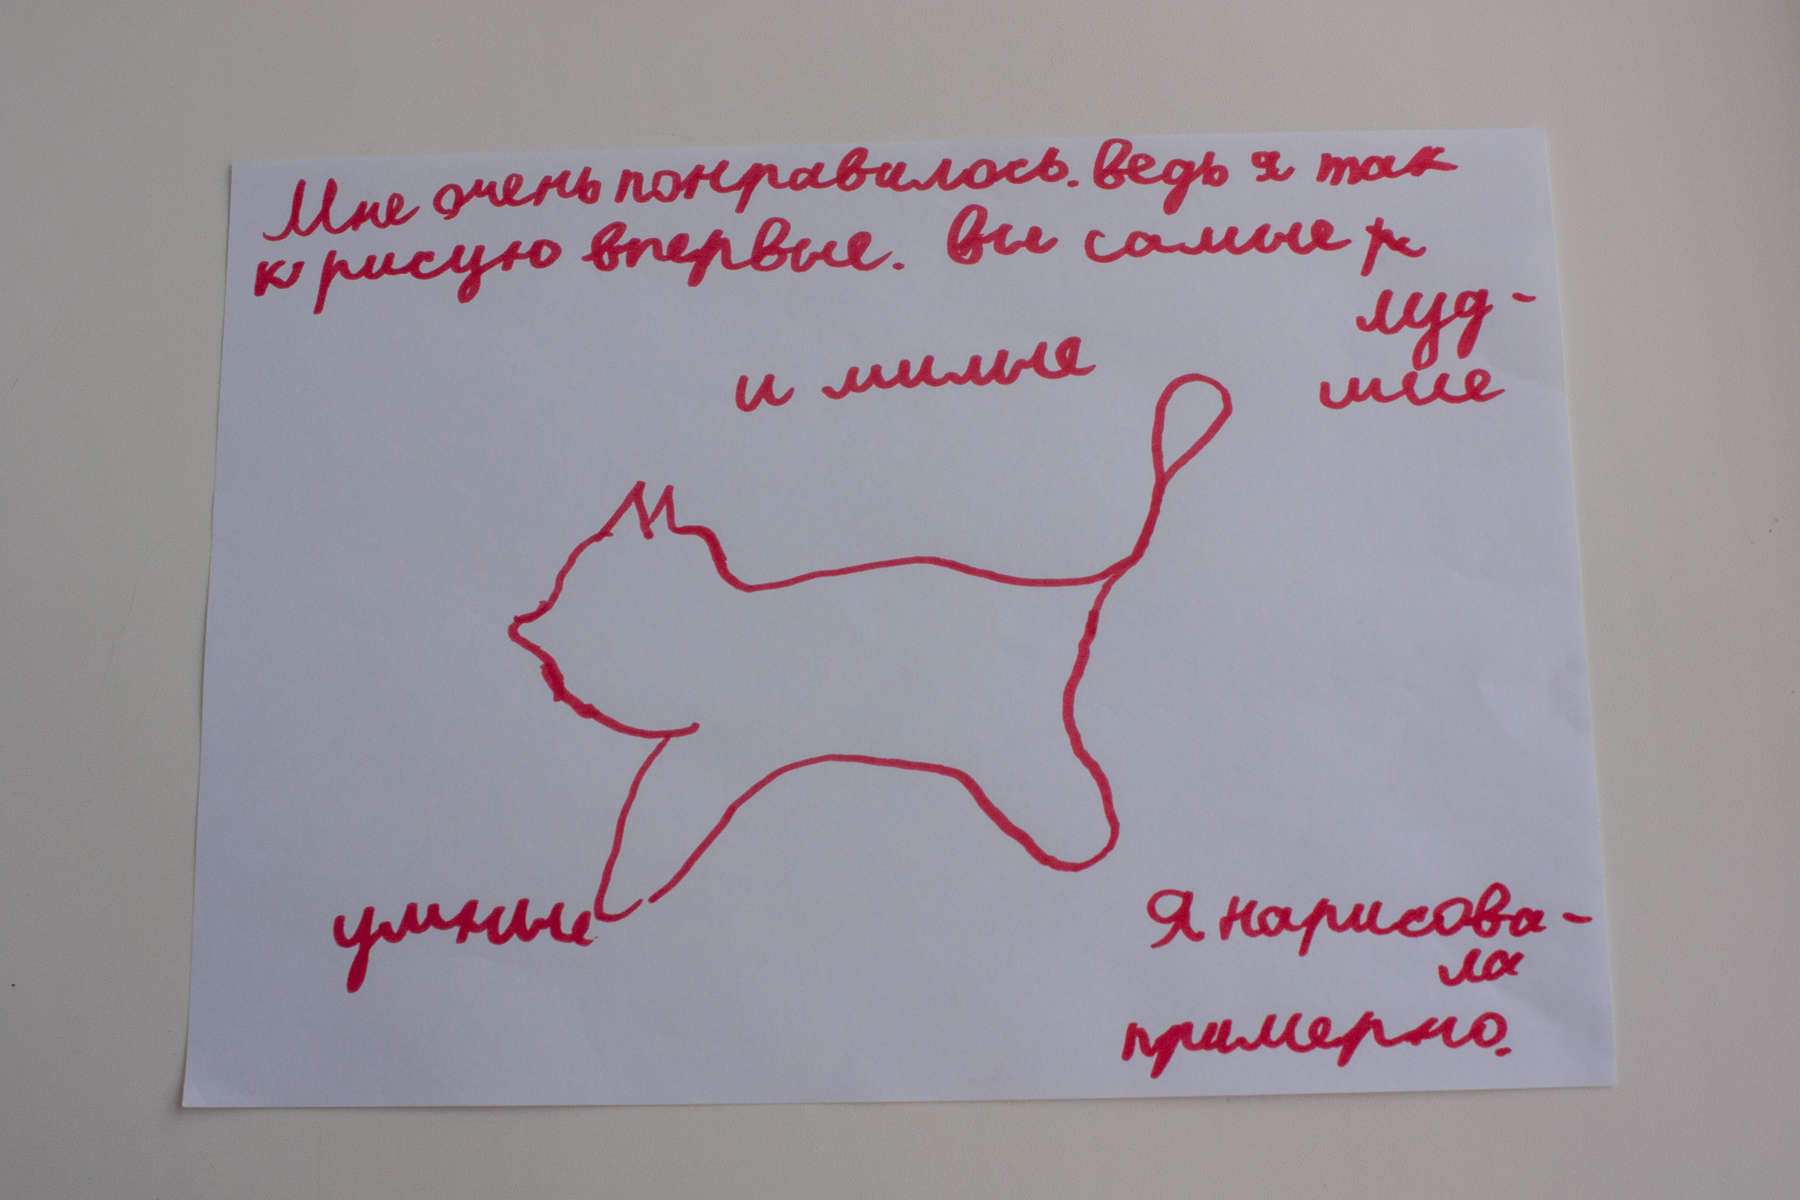 Мне очень понравилось. ведь я так
рисую впервые. вы самые
луд-
шие
и милые
умные
Я нарисова-
ла
примерно.